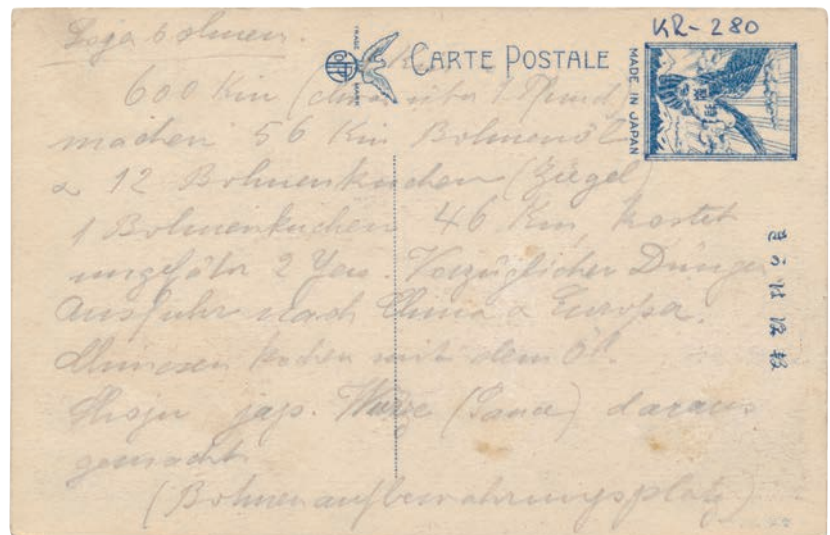 KR-280
Soja bohnen.
TRADE MARK
CARTE POSTALE
MADE IN JAPAN
600 Kin (etwas über 1 Pfund)
machen 56 Kin Bohnenöl
& 12 Bohnenkuchen (Ziegel)
1 Bohnenkuchen 46 Kin, kostet
ungefähr 2 Yen. Vorzüglicher Dünger
Ausfuhr nach China & Europa.
Chinesen kochen mit dem Öl.
Shoju jap. Würze (Sauce) daraus
gemacht
(Bohnenaufbewahrungsplatz)
きかは便郵